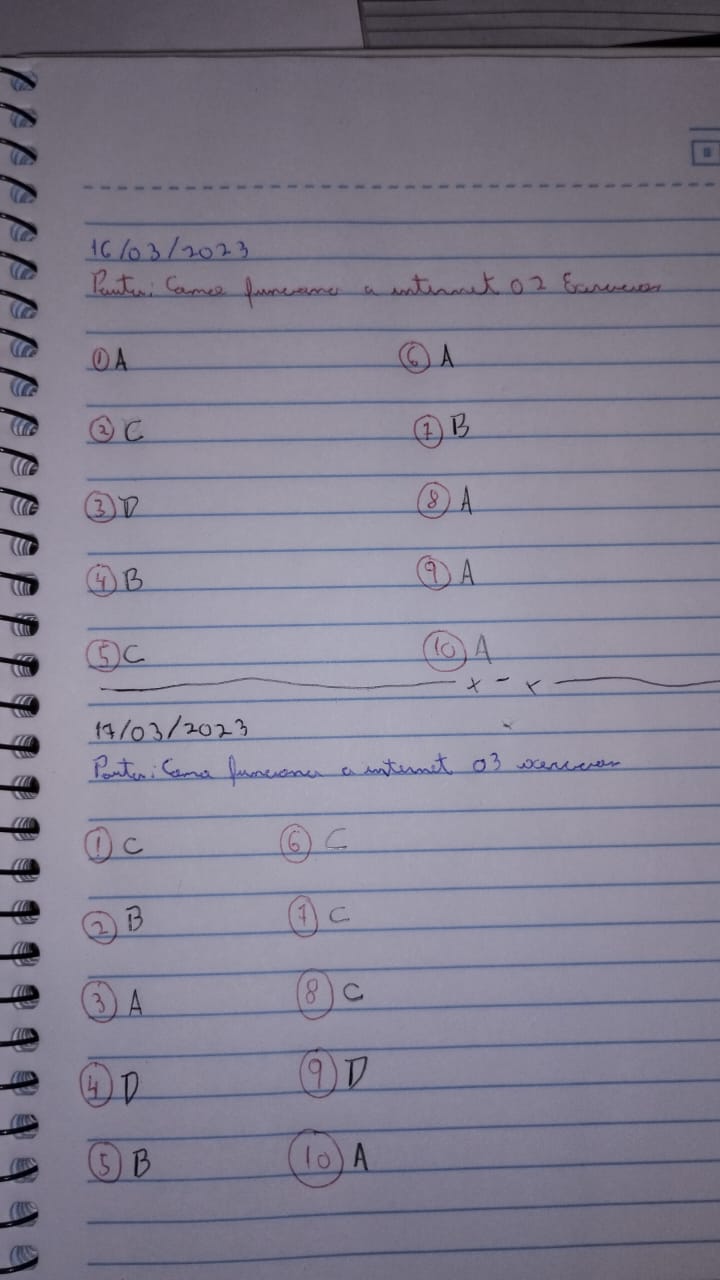 16/03/2023
Pauta: Como funciona a internet 02 Exercícios
① A ⑥ A
② C ⑦ B
③ D ⑧ A
④ B ⑨ A
⑤ C ⑩ A
x - x
17/03/2023
Pauta: Como funciona a internet 03 exercícios
① C ⑥ C
② B ⑦ C
③ A ⑧ C
④ D ⑨ D
⑤ B ⑩ A